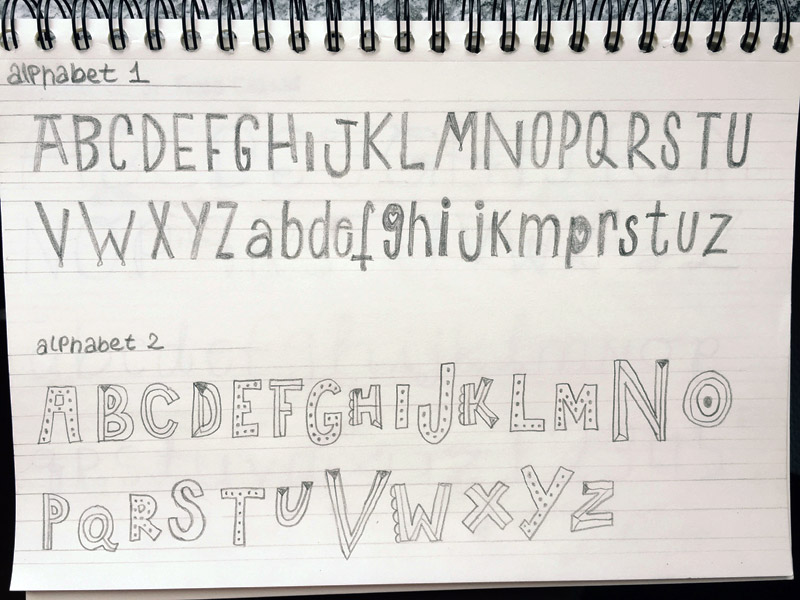 alphabet 1
ABCDEFGHIJKLMNOPQRSTU
VWXYZabdefghijkmprstuz
alphabet 2
ABCDEFGHIJKLMNO
PQRSTUVWXYZ